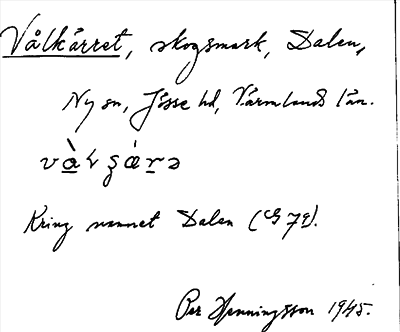 Vålkärret, skogsmark, Dalen,
Ny sn, Jösse hd, Värmlands län.
Kring namnet Dalen (G 79).
Per Henningsson 1945.